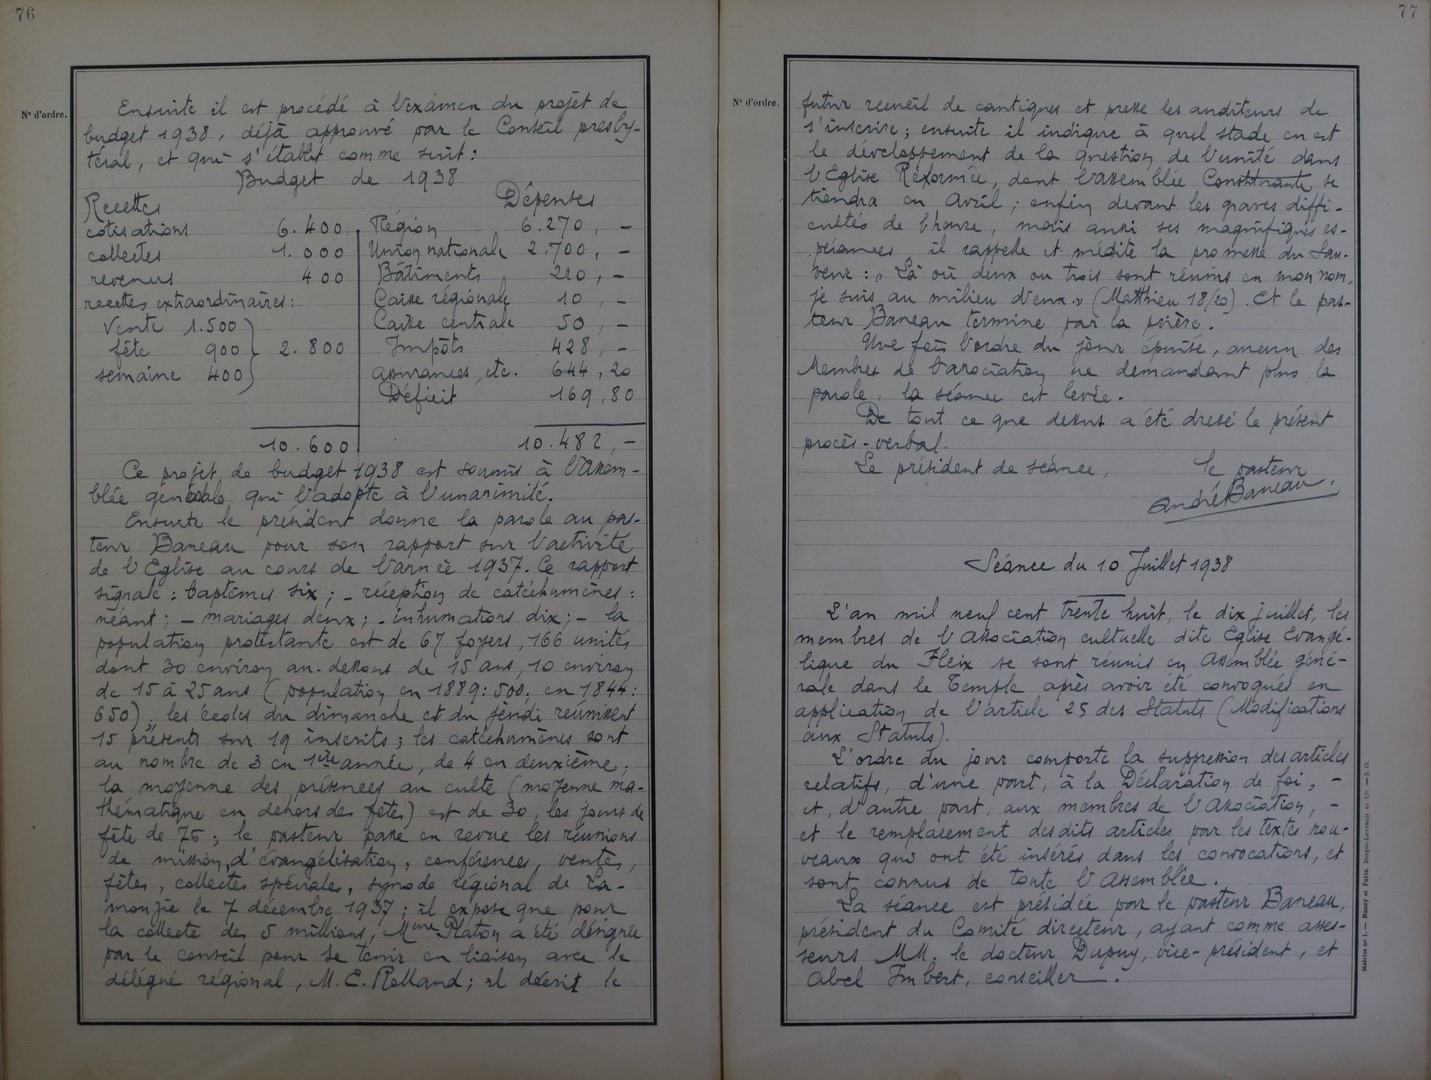 76
N° d'ordre.
Ensuite il est procédé à l'examen du projet de
budget 1938, déjà approuvé par le Conseil presby-
téral, et qui s'établit comme suit :
Budget de 1938
Recettes
cotisations 6.400
collectes 1.000
revenus 400
recettes extraordinaires :
Vente 1.500
fête 900 } 2.800
semaine 400
10.600
Dépenses
Région 6.270, -
Union nationale 2.700, -
Bâtiments 210, -
Caisse régionale 10, -
Caisse centrale 50, -
Impôts 428, -
assurances, etc. 644,20
Déficit 169,80
10.482, -
Ce projet de budget 1938 est soumis à l'Assem-
blée générale qui l'adopte à l'unanimité.
Ensuite le président donne la parole au pas-
teur Baneau pour son rapport sur l'activité
de l'Eglise au cours de l'année 1937. Ce rapport
signale : baptêmes six ; - réception de catéchumènes :
néant ; - mariages deux ; - inhumations dix ; - la
population protestante est de 67 foyers, 166 unités
dont 30 environ au-dessous de 15 ans, 10 environ
de 15 à 25 ans (population en 1889 : 500, en 1844 :
650) ; les écoles du dimanche et du jeudi réunissent
15 présents sur 19 inscrits ; les catéchumènes sont
au nombre de 3 en 1ère année, de 4 en deuxième ;
la moyenne des présences au culte (moyenne ma-
thématique en dehors des fêtes) est de 30, les jours de
fête de 75 ; le pasteur passe en revue les réunions
de mission, d'évangélisation, conférences, ventes,
fêtes, collectes spéciales, synode régional de La-
monzie le 7 décembre 1937 ; il expose que pour
la collecte des 5 millions, Mme Platon a été désignée
par le conseil pour se tenir en liaison avec le
délégué régional, M. E. Rolland ; il décrit le
77
N° d'ordre.
futur recueil de cantiques et presse les auditeurs de
s'inscrire ; ensuite il indique à quel stade en est
le développement de la question de l'unité dans
l'Eglise Réformée, dont l'assemblée Constituante se
tiendra en Avril ; enfin devant les graves diffi-
cultés de l'heure, mais aussi ses magnifiques es-
pérances, il rappelle et médite la promesse du Sau-
veur : « Là où deux ou trois sont réunis en mon nom,
je suis au milieu d'eux » (Matthieu 18/20). Et le pas-
teur Baneau termine par la prière.
Une fois l'ordre du jour épuisé, aucun des
Membres de l'association ne demandant plus la
parole, la séance est levée.
De tout ce que dessus a été dressé le présent
procès-verbal.
Le président de séance, le pasteur
André Baneau.
Séance du 10 Juillet 1938
L'an mil neuf cent trente huit, le dix juillet, les
membres de l'association cultuelle dite Eglise Evangé-
lique du Fleix se sont réunis en Assemblée géné-
rale dans le Temple après avoir été convoqués en
application de l'article 25 des Statuts (Modifications
aux Statuts).
L'ordre du jour comporte la suppression des articles
relatifs, d'une part, à la Déclaration de foi, -
et, d'autre part, aux membres de l'Association, -
et le remplacement desdits articles par les textes nou-
veaux qui ont été insérés dans les convocations, et
sont connus de toute l'Assemblée.
La séance est présidée par le pasteur Baneau,
président du Comité directeur, ayant comme asses-
seurs MM. le docteur Dupuy, vice-président, et
Abel Imbert, conseiller.